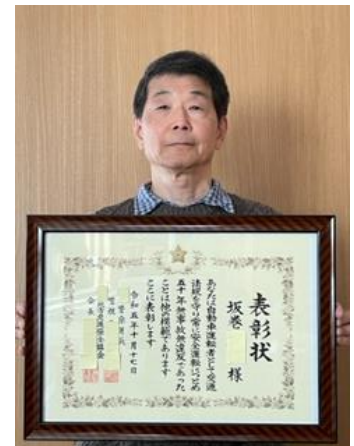 表彰状
坂巻 様
あなたは自動車運転者として交通
法規を守り常に安全運転につとめ
五十年無事故無違反であった
ことは他の模範であります
ここに表彰します
令和五年十月十七日
会長